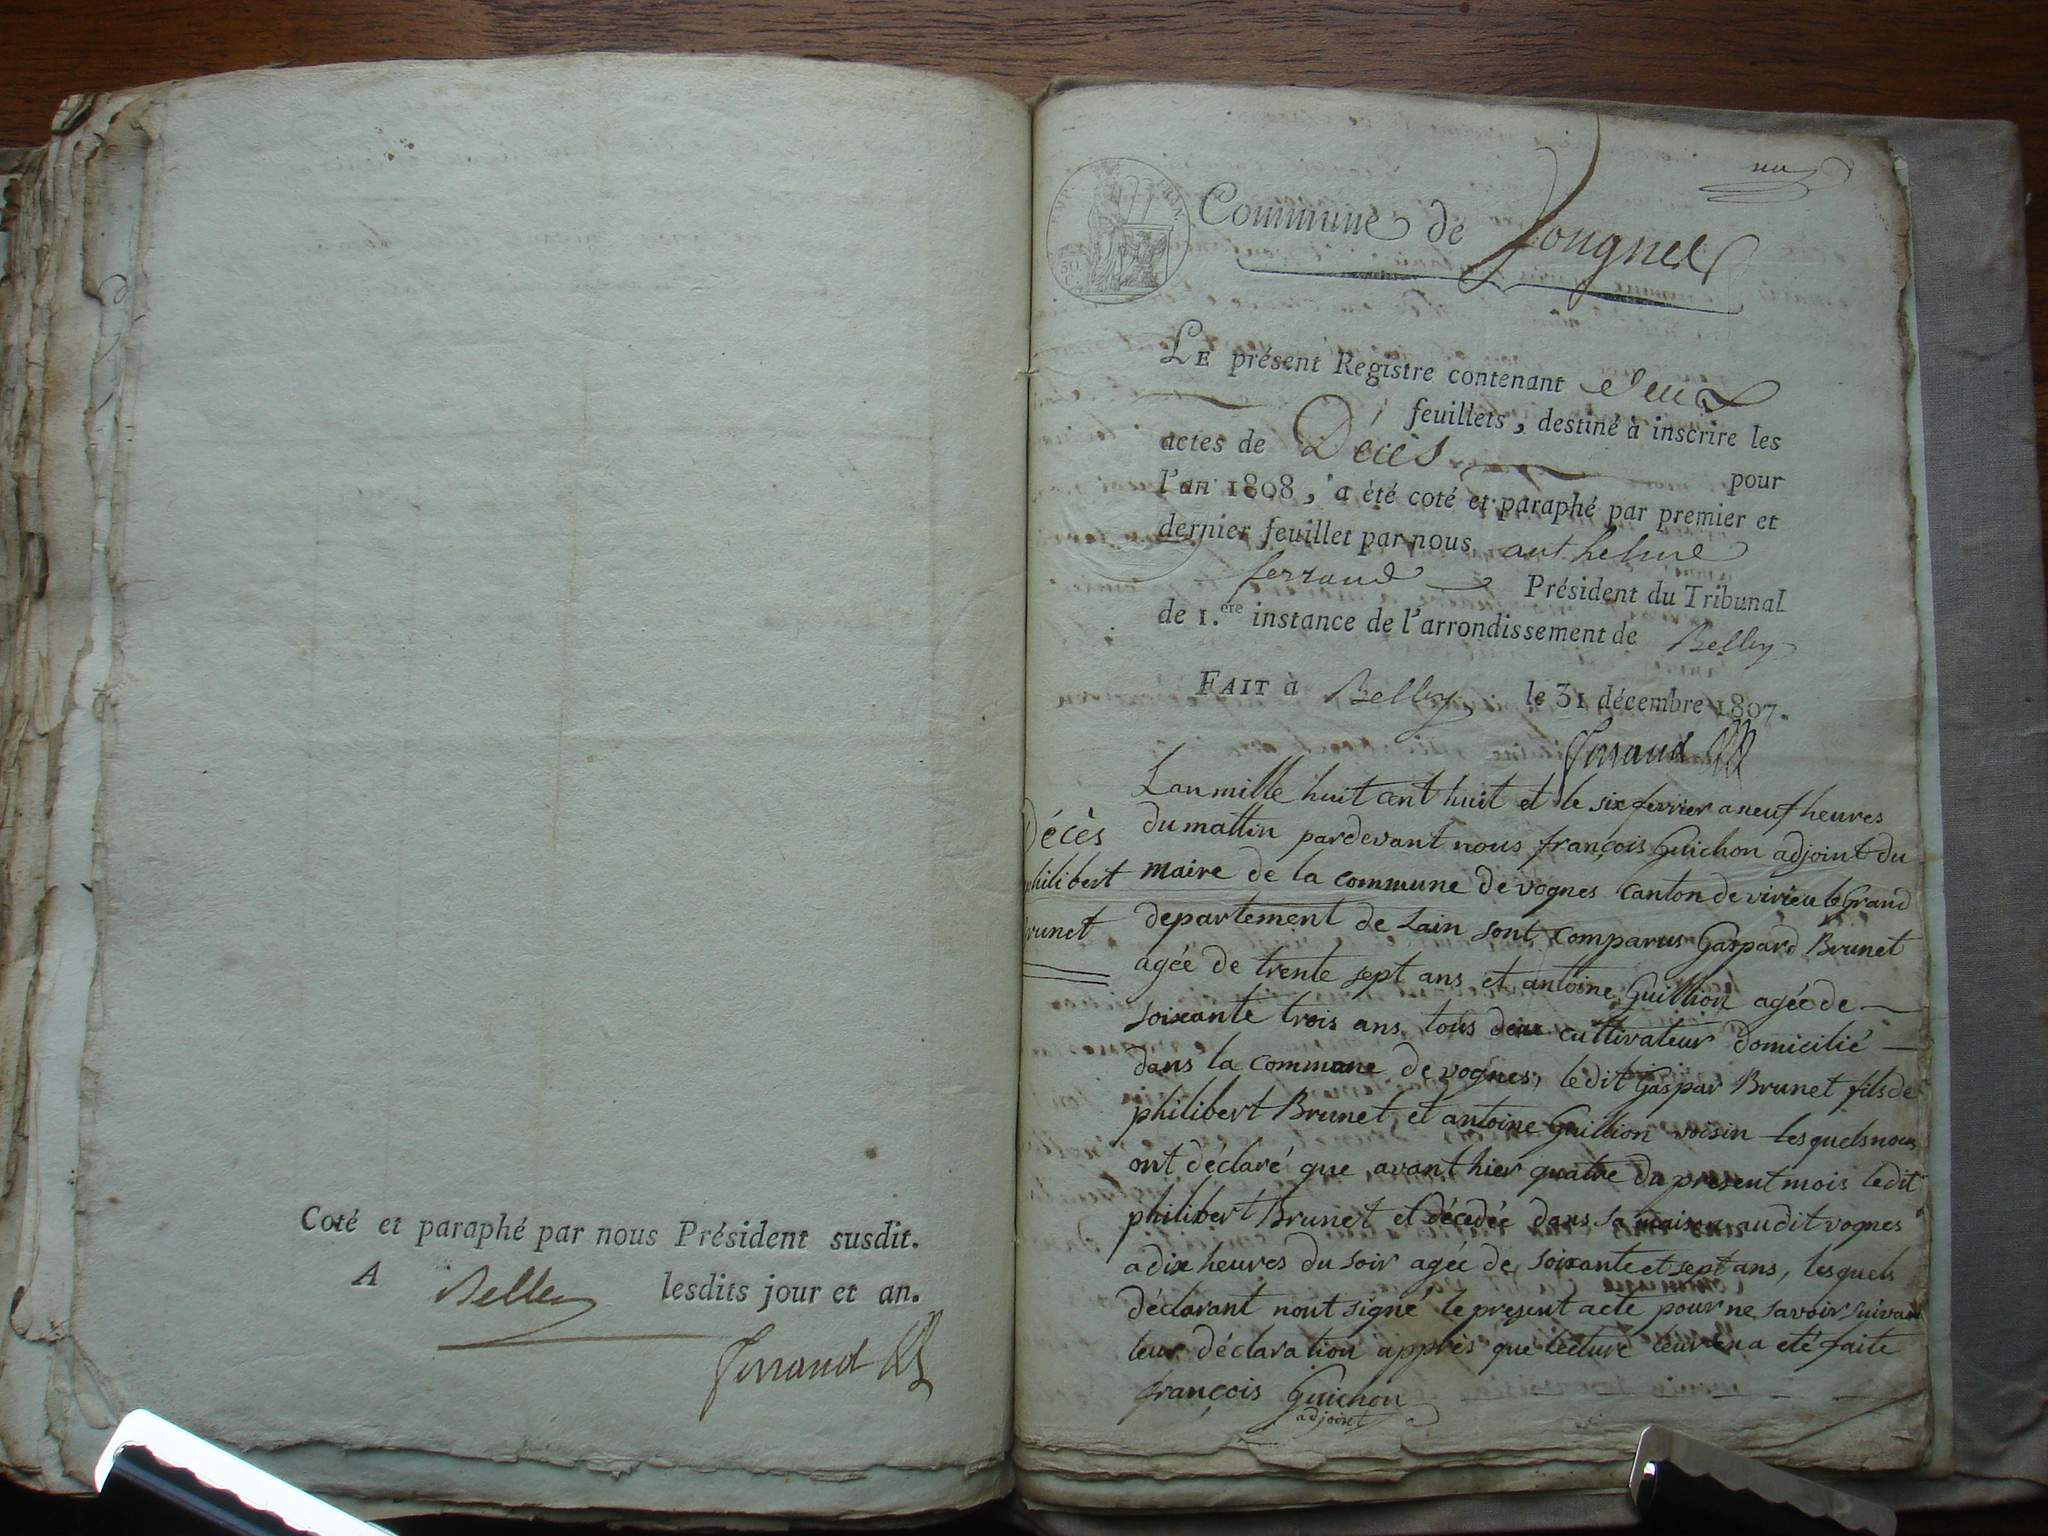 Coté et paraphé par nous Président susdit.
A Belley lesdits jour et an.
Ferrand
un
EMP. FRAN.
50
Commune de Vongnes
LE présent Registre contenant deux
feuillets, destiné à inscrire les
actes de Décès pour
l'an 1808, a été coté et paraphé par premier et
dernier feuillet par nous anthelme
ferrand Président du Tribunal
de 1.ere instance de l'arrondissement de Belley
FAIT à Belley le 31 décembre 1807.
Ferrand
Décès
philibert
Brunet
Lan mille huit cent huit et le six fevrier a neuf heures
du mattin pardevant nous françois Guichon adjoint du
maire de la commune de vognes canton de virieu le Grand
departement de Lain sont comparus Gaspard Brunet
agée de trente sept ans et antoine Guillion agée de
soixante trois ans tous deux cultivateur domicilié
dans la commune de vognes, ledit Gaspar Brunet fils de
philibert Brunet et antoine Guillion voisin lesquels nous
ont déclaré que avant hier quatre du present mois ledit
philibert Brunet et décedée dans sa maison audit vognes
a dix heures du soir agée de soixante et sept ans, lesquels
déclarant nont signé le present acte pour ne savoir suivant
leur déclaration apprès que lecture leur en a eté faite
françois Guichon
adjoint